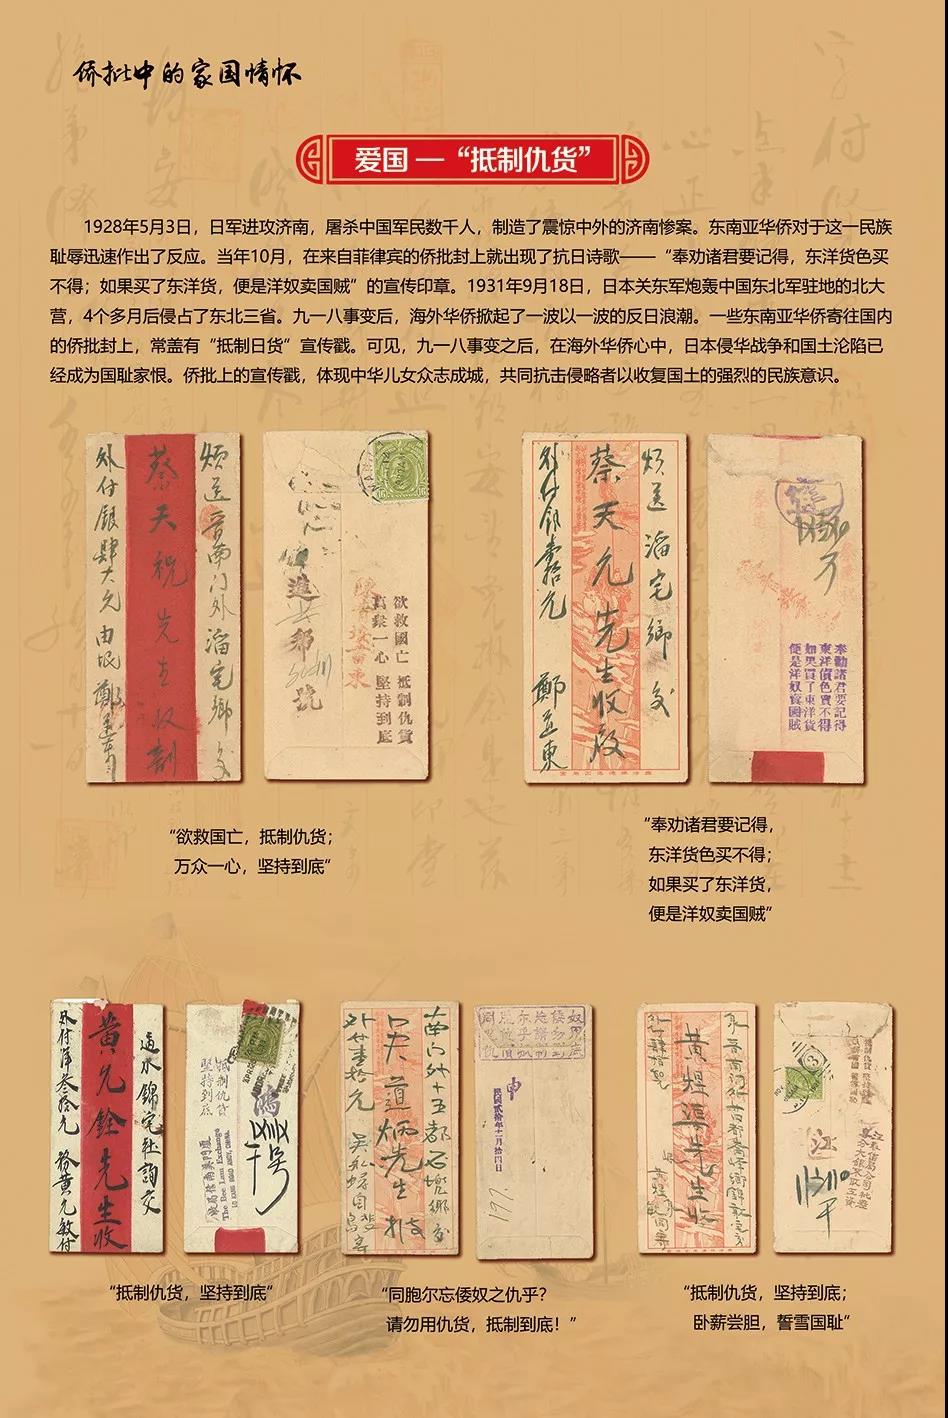 侨批中的家国情怀
爱国 — “抵制仇货”
1928年5月3日，日军进攻济南，屠杀中国军民数千人，制造了震惊中外的济南惨案。东南亚华侨对于这一民族
耻辱迅速作出了反应。当年10月，在来自菲律宾的侨批封上就出现了抗日诗歌——“奉劝诸君要记得，东洋货色买
不得；如果买了东洋货，便是洋奴卖国贼”的宣传印章。1931年9月18日，日本关东军炮轰中国东北军驻地的北大
营，4个多月后侵占了东北三省。九一八事变后，海外华侨掀起了一波以一波的反日浪潮。一些东南亚华侨寄往国内
的侨批封上，常盖有“抵制日货”宣传戳。可见，九一八事变之后，在海外华侨心中，日本侵华战争和国土沦陷已
经成为国耻家恨。侨批上的宣传戳，体现中华儿女众志成城，共同抗击侵略者以收复国土的强烈的民族意识。
烦送晋南门外溜宅鄉交
蔡天祝先生收剖
外付銀肆大元
欲救國亡 抵制仇貨
萬衆一心 堅持到底
烦送溜宅鄉交
蔡天允先生收啟
外付銀壹拾元 鄭孟東
奉勸諸君要記得
東洋貨色買不得
如果買了東洋貨
便是洋奴賣國賊
“欲救国亡，抵制仇货；
万众一心，坚持到底”
“奉劝诸君要记得，
东洋货色买不得；
如果买了东洋货，
便是洋奴卖国贼”
黄允銓先生收
抵制仇貨
堅持到底
The Bee Lian Exchange
南门外十五都石
吴道炳先生收
民國貳拾年十二月拾四日
197.
抵制仇貨 堅持到底
“抵制仇货，坚持到底”
“同胞尔忘倭奴之仇乎？
请勿用仇货，抵制到底！”
“抵制仇货，坚持到底；
卧薪尝胆，誓雪国耻”